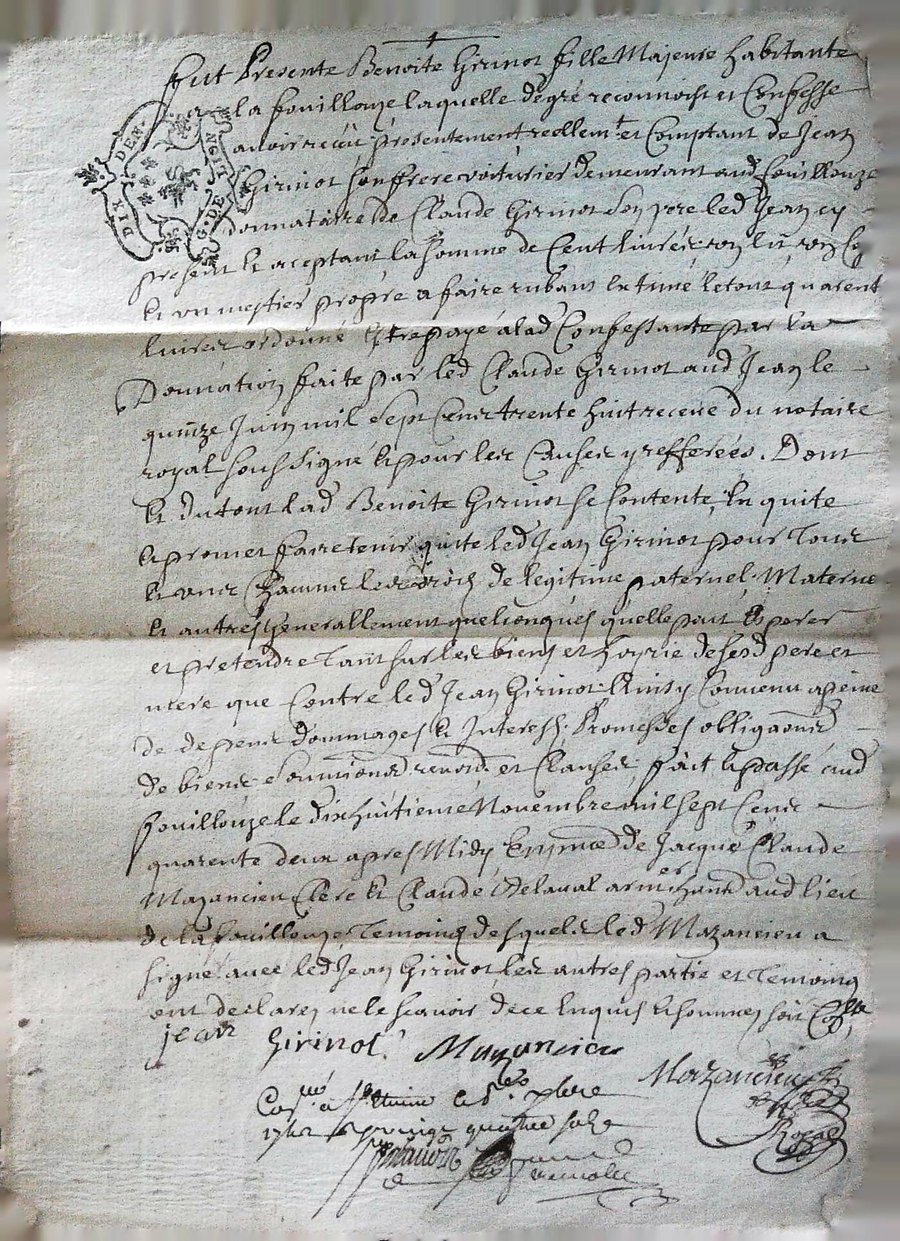 fut Presente Benoite Girinot fille Majeure habitante
la fouillouze laquelle degré reconnoist et Confesse
avoir reçu presentement reellemt et Comptant de Jean
Girinot son frere voiturier demeurant aud fouillouze
donnataire de Claude Girinot son pere led Jean cy
present et aceptant la somme de Cent livres
et un mestier propre a faire rubans estimé le tout quarent
livres ordonné Estre payé a lad Confessante par la
Donnation faite par led Claude Girinot aud Jean le
quinze Juin mil sept cens trente huit receue du notaire
royal soussigné et pour les Causes y refferées. Dont
et du tout lad Benoite Girinot se Contente, En quite
et promet faire tenir quite led Jean Girinot pour Tous
et uns Chacuns led droits de legitime paternel Materne
et autres Generallement quelconques quelle peut Esperer
et pretendre Tant sur les biens et hoyrie desesd pere et
mere que Contre led Jean Girinot Ainsy Convenu a peine
de depens dommages et Interests. Promesses obligaons
de biens soumions renons et Clauses. fait et passé aud
fouillouze le dixhuitieme Novembre mil sept Cens
quarente deux apres Midy En pnce de Jacque Claude
Mazancieu Clerc et Claude Delaval armer hant aud lieu
de la fouillouze Temoins desquels led Mazancieu a
signé avec led Jean Girinot les autres partie et Temoins
ont declarez ne le scavoir de ce Enquis et sommez soit Collé
jean Girinot. Mazancieu
Mazancieu
Nre
Royal
Conné a St Etienne le 1er xbre
1742 quatre sols
DIR DEN.
G. DE